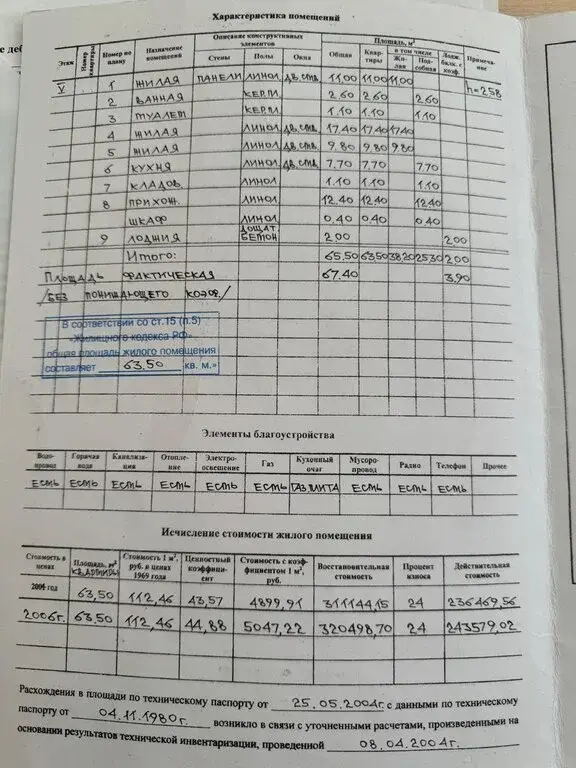 Характеристика помещений
Этаж | Номер квартиры | Номер по плану | Назначение помещений | Описание конструктивных элементов | Площадь, м² | Лодж. балк. с коэф. | Примечание
Стены | Полы | Окна | Общая | в том числе
Квартиры | Жилая | Подсобная
V | 1 | ЖИЛАЯ | ПАНЕЛИ | ЛИНОЛ | ДВ.СТВ. | 11.00 | 11.00 | 11.00 | h=2.58
2 | ВАННАЯ | КЕРАМ. | 2.60 | 2.60 | 2.60
3 | ТУАЛЕТ | КЕРАМ. | 1.10 | 1.10 | 1.10
4 | ЖИЛАЯ | ЛИНОЛ | ДВ.СТВ. | 17.40 | 17.40 | 17.40
5 | ЖИЛАЯ | ЛИНОЛ | ДВ.СТВ. | 9.80 | 9.80 | 9.80
6 | КУХНЯ | ЛИНОЛ | ДВ.СТВ. | 7.70 | 7.70 | 7.70
7 | КЛАДОВ. | ЛИНОЛ | 1.10 | 1.10 | 1.10
8 | ПРИХОЖ. | ЛИНОЛ | 12.40 | 12.40 | 12.40
ШКАФ | ЛИНОЛ | 0.40 | 0.40 | 0.40
9 | ЛОДЖИЯ | ДОЩАТ. БЕТОН | 2.00 | 2.00
Итого: | 65.50 | 63.50 | 38.20 | 25.30 | 2.00
ПЛОЩАДЬ ФАКТИЧЕСКАЯ | 67.40 | 3.90
/БЕЗ ПОНИЖАЮЩЕГО КОЭФ./
В соответствии со ст.15 (п.5)
«Жилищного кодекса РФ»
общая площадь жилого помещения
составляет 63.50 кв. м.»
Элементы благоустройства
Водопровод | Горячая вода | Канализация | Отопление | Электроосвещение | Газ | Кухонный очаг | Мусоропровод | Радио | Телефон | Прочее
ЕСТЬ | ЕСТЬ | ЕСТЬ | ЕСТЬ | ЕСТЬ | ЕСТЬ | ГАЗ.ПЛИТА | ЕСТЬ | ЕСТЬ | ЕСТЬ
Исчисление стоимости жилого помещения
Стоимость в ценах | Площадь, м² КВАРТИРЫ | Стоимость 1 м², руб. в ценах 1969 года | Ценностный коэффициент | Стоимость с коэффициентом 1 м², руб. | Восстановительная стоимость | Процент износа | Действительная стоимость
2004 год | 63,50 | 112,46 | 43,57 | 4899,91 | 311144,15 | 24 | 236469,56
2006г. | 63,50 | 112,46 | 44,88 | 5047,22 | 320498,70 | 24 | 243579,02
Расхождения в площади по техническому паспорту от 25.05.2004г. с данными по техническому
паспорту от 04.11.1980г. возникло в связи с уточненными расчетами, произведенными на
основании результатов технической инвентаризации, проведенной 08.04.2004г.